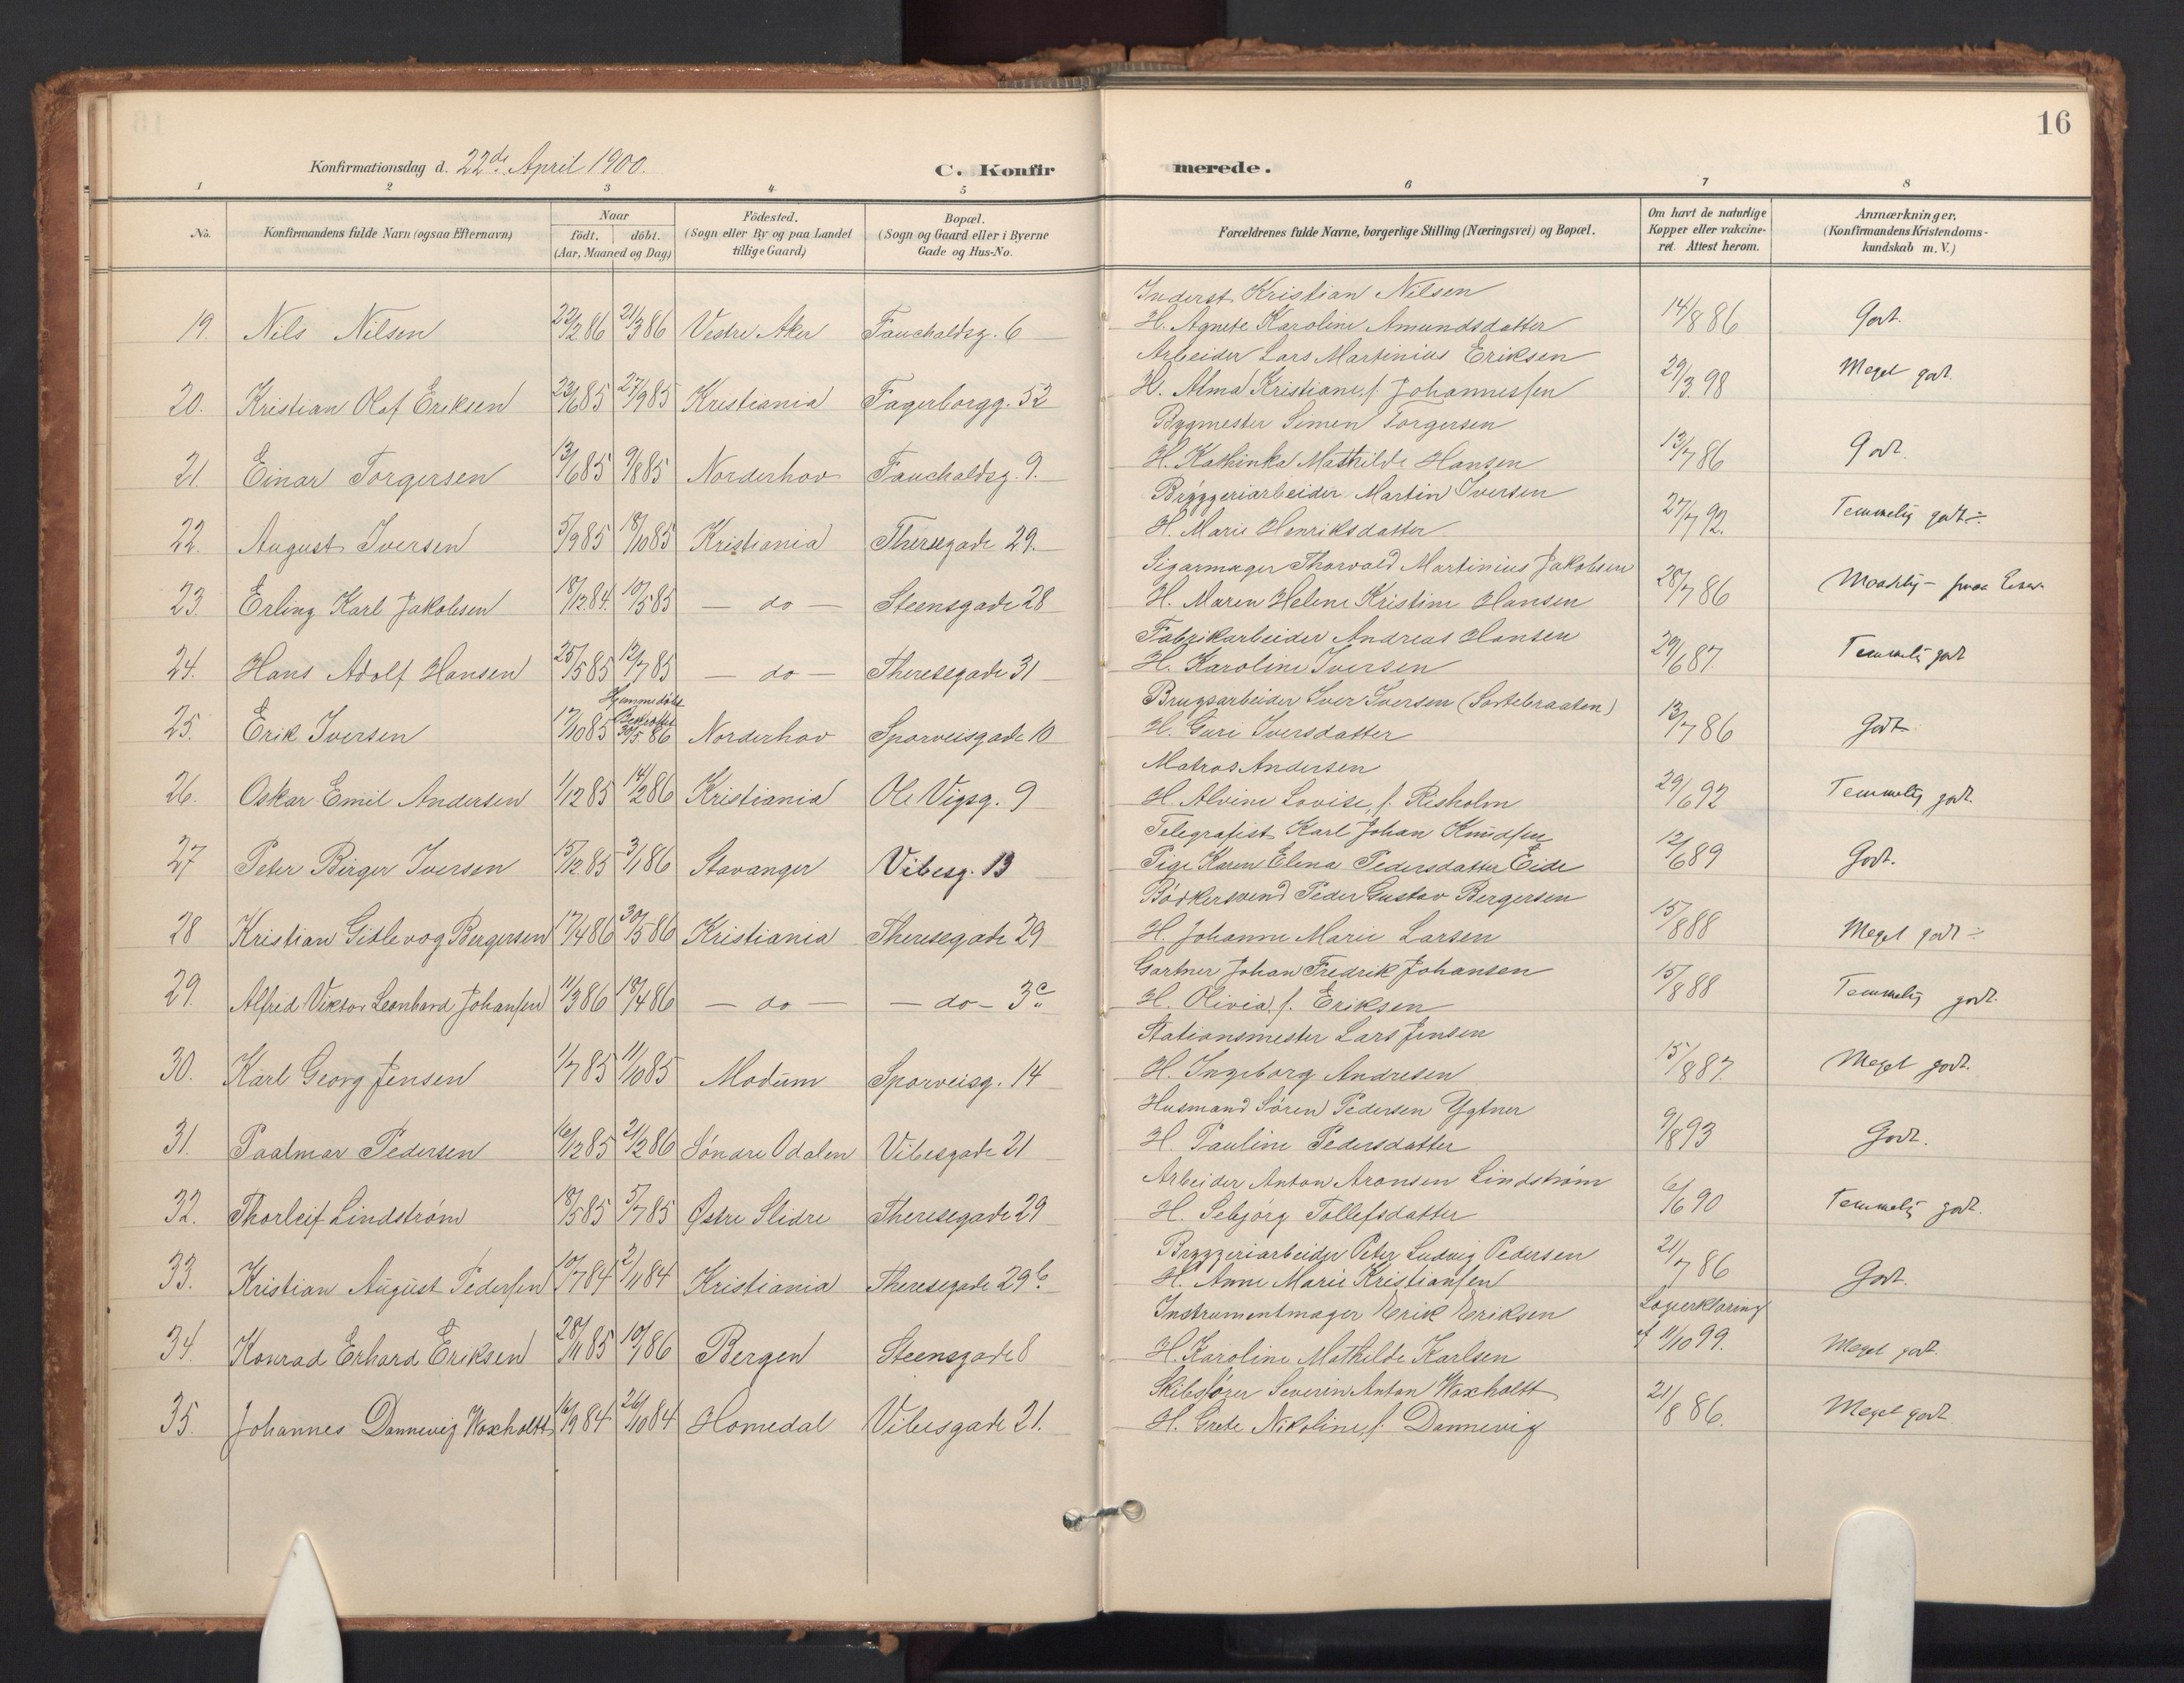 16
Konfirmationsdag d. 22de April 1900.
C. Konfirmerede.
1 2 3 4 5 6 7 8
No.
Konfirmandens fulde Navn (ogsaa Efternavn)
Naar
födt. döbt.
(Aar, Maaned og Dag)
Födested.
(Sogn eller By og paa Landet
tillige Gaard)
Bopæl.
(Sogn og Gaard eller i Byerne
Gade og Hus-No.
Forældrenes fulde Navne, borgerlige Stilling (Næringsvei) og Bopæl.
Om havt de naturlige
Kopper eller vakcine-
ret. Attest herom.
Anmærkninger,
(Konfirmandens Kristendoms-
kundskab m. V.)
Inderst Kristian Nilsen
19. Nils Nilsen 22/2 86 21/3 86 Vestre Aker Fauchaldsg. 6 H. Agnete Karoline Amundsdatter 14/8 86 Godt.
Arbeider Lars Martinius Eriksen
20. Kristian Olaf Eriksen 23/6 85 27/9 85 Kristiania Fagerborgg. 52 H. Alma Kristiane, f. Johannessen 29/3 98 Meget godt.
Bygmester Simen Torgersen
21. Einar Torgersen 13/6 85 9/8 85 Norderhov Fauchaldsg. 9. H. Kathinka Mathilde Hansen 13/7 86 Godt.
Bryggeriarbeider Martin Iversen
22. August Iversen 5/9 85 18/10 85 Kristiania Theresegade 29. H. Marie Henriksdatter 27/7 92. Temmelig godt ÷
Sigarmager Thorvald Martinius Jakobsen
23. Erling Karl Jakobsen 18/12 84. 10/5 85 - do - Steensgade 28 H. Maren Helene Kristine Hansen 28/7 86 Maadelig -
Fabrikarbeider Andreas Hansen
24. Hans Adolf Hansen 25/5 85 12/7 85 - do - Theresegade 31 H. Karoline Iversen 29/6 87. Temmelig godt
Hjemmedöbt
Brugsarbeider Iver Iversen (Sortebraaten)
25. Erik Iversen 17/10 85 30/5 86 Norderhov Sporveisgade 10 H. Guri Iversdatter 13/7 86 Godt
Matros Andersen
26. Oskar Emil Andersen 1/12 85 14/2 86 Kristiania Ole Vigsg. 9 H. Alvine Lovise, f. Risholm 29/6 92 Temmelig godt.
Telegrafist Karl Johan Knudsen
27 Peter Birger Iversen 15/12 85 3/1 86 Stavanger Vibesg. 13 Pige Karen Elena Pedersdatter Eide 12/6 89 Godt.
Bödkersvend Peder Gustav Bergersen
28 Kristian Gislevog Bergersen 17/4 86 30/5 86 Kristiania Theresegade 29 H. Johanne Marie Larsen 15/8 88 Meget godt ÷
Gartner Johan Fredrik Johansen
29. Alfred Viktor Leonhard Johansen 11/3 86 18/4 86 - do - - do - 3c H. Olivia, f. Eriksen 15/8 88 Temmelig godt.
Stationsmester Lars Jensen
30. Karl Georg Jensen 1/7 85 11/10 85 Modum Sporveisg. 14 H. Ingeborg Andresen 15/8 87. Meget godt.
Husmand Sören Pedersen Ygtner
31. Paalmar Pedersen 16/12 85 21/2 86 Söndre Odalen Vibesgade 21 H. Pauline Pedersdatter 9/8 93 Godt.
Arbeider Anton Aronsen Lindström
32. Thorleif Lindström 18/5 85 5/7 85 Østre Slidre Theresegade 29 H. Sebjörg Tollefsdatter 6/6 90 Temmelig godt.
Bryggeriarbeider Peter Ludvig Pedersen
33. Kristian August Pedersen 10/7 84 2/11 84 Kristiania Theresegade 29b. H. Anne Marie Kristiansen 21/7 86 Godt.
Instrumentmager Erik Eriksen Lægerklæring
34. Konrad Erhard Eriksen 28/11 85 10/1 86 Bergen Steensgade 8 H. Karoline Mathilde Karlsen af 11/10 99. Meget godt.
Skibsförer Severin Anton Woxholtt
35. Johannes Dannevig Woxholtt 16/9 84 26/10 84 Homedal Vibesgade 21. H. Grete Nikoline, f. Dannevig 21/8 86. Meget godt.